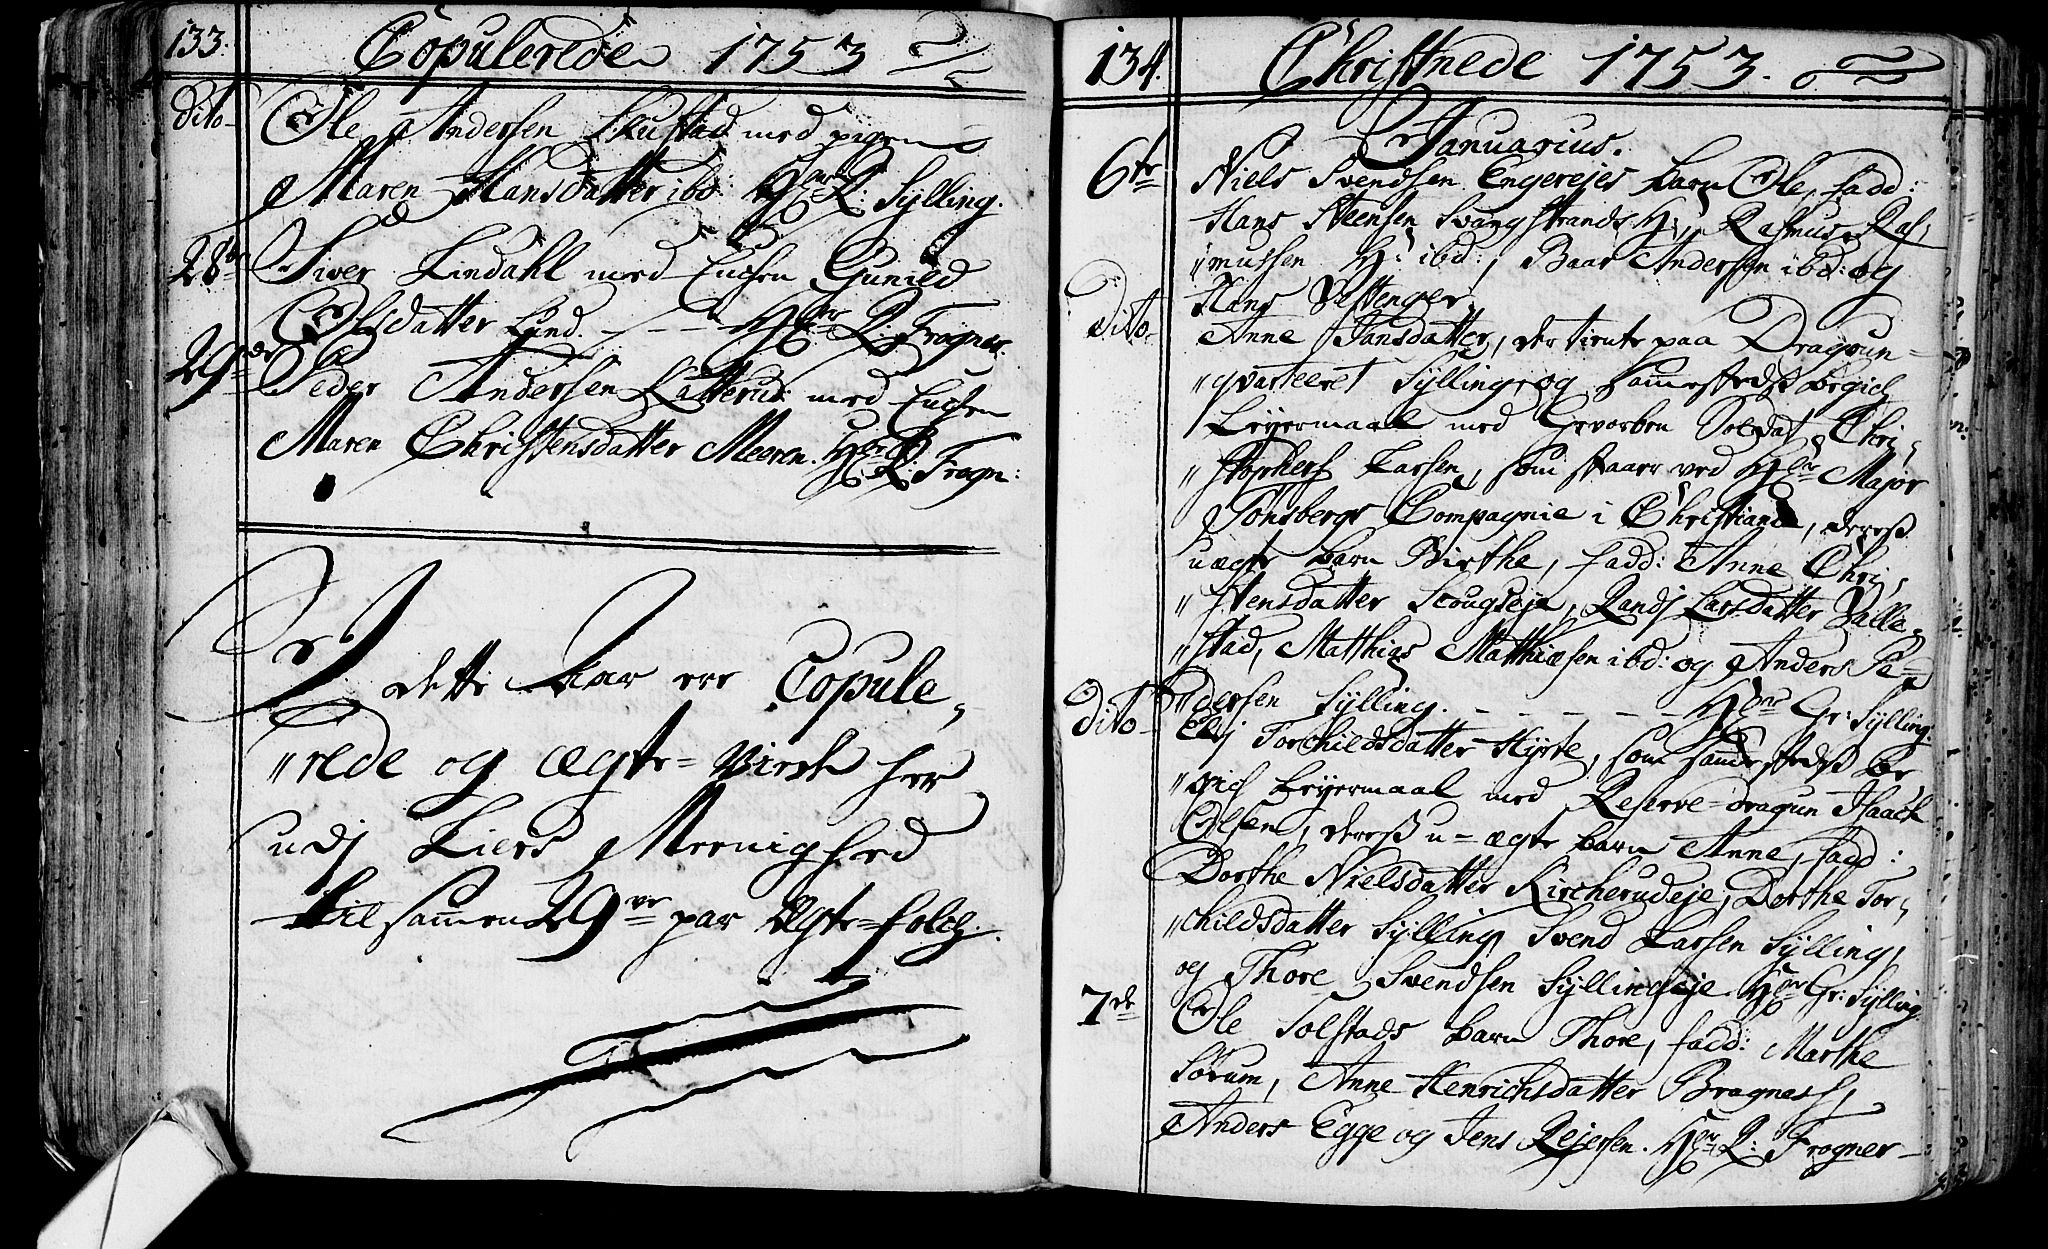 133.
Copulerede 1753
dito
Ole Andersen Skustad med pigen
Maren Hansdatter ibd: Hr R: Sylling.
28de
Siver Lindahl med Enchen Gunild
Olsdatter Lund. - - - Hr R: Frogner.
29de
Peder Andersen Katterud med Enchen
Maren Christensdatter Meeren. Hr R Frogn:
I dette Aar ere Copule,
"rede og ægte-viede her
udj Liers Meenighed
tilsammen 29ve par Ægte-folch.
134.
Christnede 1753.
Januarius.
6te
Niels Svendsen Engerejes barn Ole, fadd:
Hans Steensen Svangstrands H:, Rasmus Ras,
"mussen H: ibd:, Baar Andersen ibd: og
Hans Vestenger.
Dito
Anne Hansdatter, der tiente paa Dragoun-
"qvarteeret Sylling, og sammestedss begich
Leyermaal med Gevorben Soldat Chri,
"stopher Larsen, som staaer ved Hr Major
Tønsbergs Compagnie i Christiania, deress
uægte barn Birthe, fadd: Anne Chri,
"stensdatter Scougseje, Randj Larsdatter Valle,
"stad, Matthias Matthiæsen ibd: og Anders Pe-
"dersen Sylling. - - - - - Hr Gr: Sylling.
dito
Eli Torchildsdatter Hyrte, som sammestedss be
"gich Leyermaal med Reserve-dragun Isaach
Olsen, deress u-ægte barn Anne, fadd:
Dorthe Nielsdatter Kircherudeje, Dorthe Tor,
"childsdatter Sylling, Svend Larsen Sylling,
og Thore Svendsen Syllingseje. Hr Gr: Sylling
7de
Ole Solstads barn Thore, fadd: Marthe
Sørum, Anne Henrichsdatter Bragness,
Anders Egge og Jens Rejersen. Hr R: Frogner-